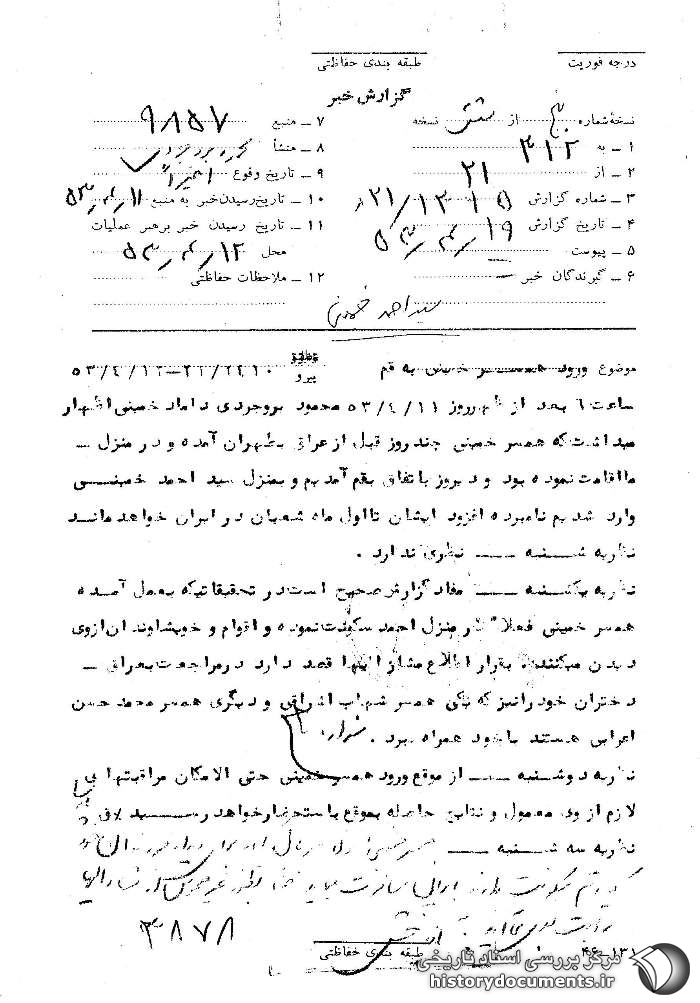 درجه فوریت
طبقه بندی حفاظتی
گزارش خبر
نسخهٔ شماره از نسخه
۱ ـ به ۳۱۲
۲ ـ از ۲۱
۳ ـ شماره گزارش
۴ ـ تاریخ گزارش ۱۹ / ۴ / ۵۳
۵ ـ پیوست
۶ ـ گیرندگان خبر
۷ ـ منبع ۹۸۵۷
۸ ـ منشأ
۹ ـ تاریخ وقوع اخیرا"
۱۰ ـ تاریخ رسیدن خبر به منبع ۱۱ / ۴ / ۵۳
۱۱ ـ تاریخ رسیدن خبر برهبر عملیات
محل ۱۲ / ۴ / ۵۳
۱۲ ـ ملاحظات حفاظتی
سید احمد خمینی
موضوع ورود همسر خمینی به قم
پیرو
ساعت ۶ بعد از ظهر روز ۵۳/۴/۱۱ محمود بروجردی داماد خمینی اظهار
میداشت که همسر خمینی چند روز قبل از عراق بطهران آمده و در منزل ـ
ما اقامت نموده بود و دیروز باتفاق بقم آمدیم و بمنزل سید احمد خمینی
وارد شدیم نامبرده افزود ایشان تا اول ماه شعبان در ایران خواهد ماند
نظریه شنبه ـــ نظری ندارد .
نظریه یکشنبه ـــ مفاد گزارش صحیح است در تحقیقاتیکه بعمل آمده
همسر خمینی فعلا" در منزل احمد سکونت نموده و اقوام و خویشاوندان از وی
دیدن میکنند، بقرار اطلاع مشارالیها قصد دارد در مراجعت بعراق ـ
دختران خود را نیز که یکی همسر شهاب اشراقی و دیگری همسر محمد حسن
اعرابی هستند با خود همراه ببرد .
نظریه دوشنبه ـــ از موقع ورود همسر خمینی حتی الامکان مراقبتهای
لازم از وی معمول و نتایج حاصله بموقع باستحضار خواهد رسید
نظریه سه شنبه ـــ
۳۸۷۸
طبقه بندی حفاظتی
۴۶-۱۳۱
مرکز بررسی اسناد تاریخی
historydocuments.ir